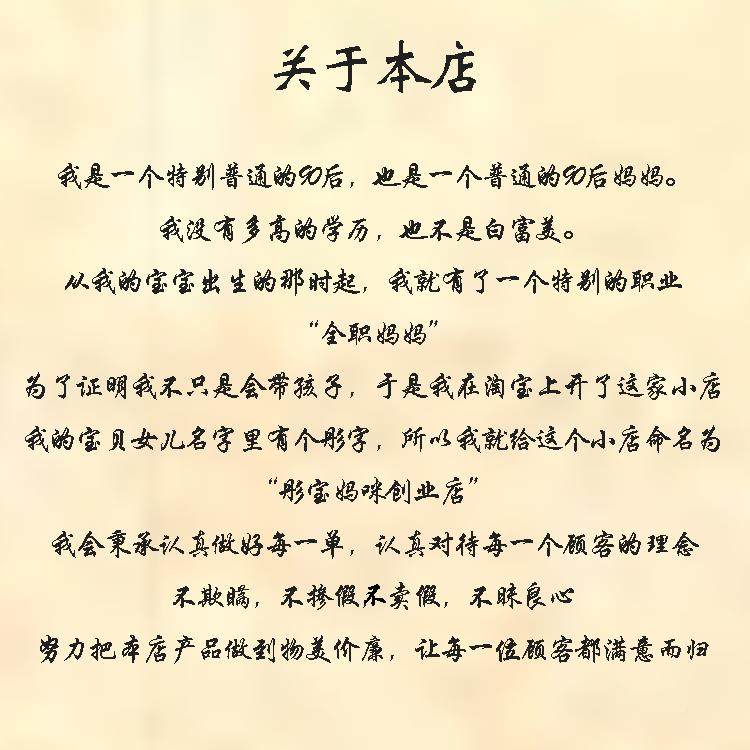 关于本店
我是一个特别普通的90后，也是一个普通的90后妈妈。
我没有多高的学历，也不是白富美。
从我的宝宝出生的那时起，我就有了一个特别的职业
“全职妈妈”
为了证明我不只是会带孩子，于是我在淘宝上开了这家小店
我的宝贝女儿名字里有个彤字，所以我就给这个小店命名为
“彤宝妈咪创业店”
我会秉承认真做好每一单，认真对待每一个顾客的理念
不欺瞒，不掺假不卖假，不昧良心
努力把本店产品做到物美价廉，让每一位顾客都满意而归